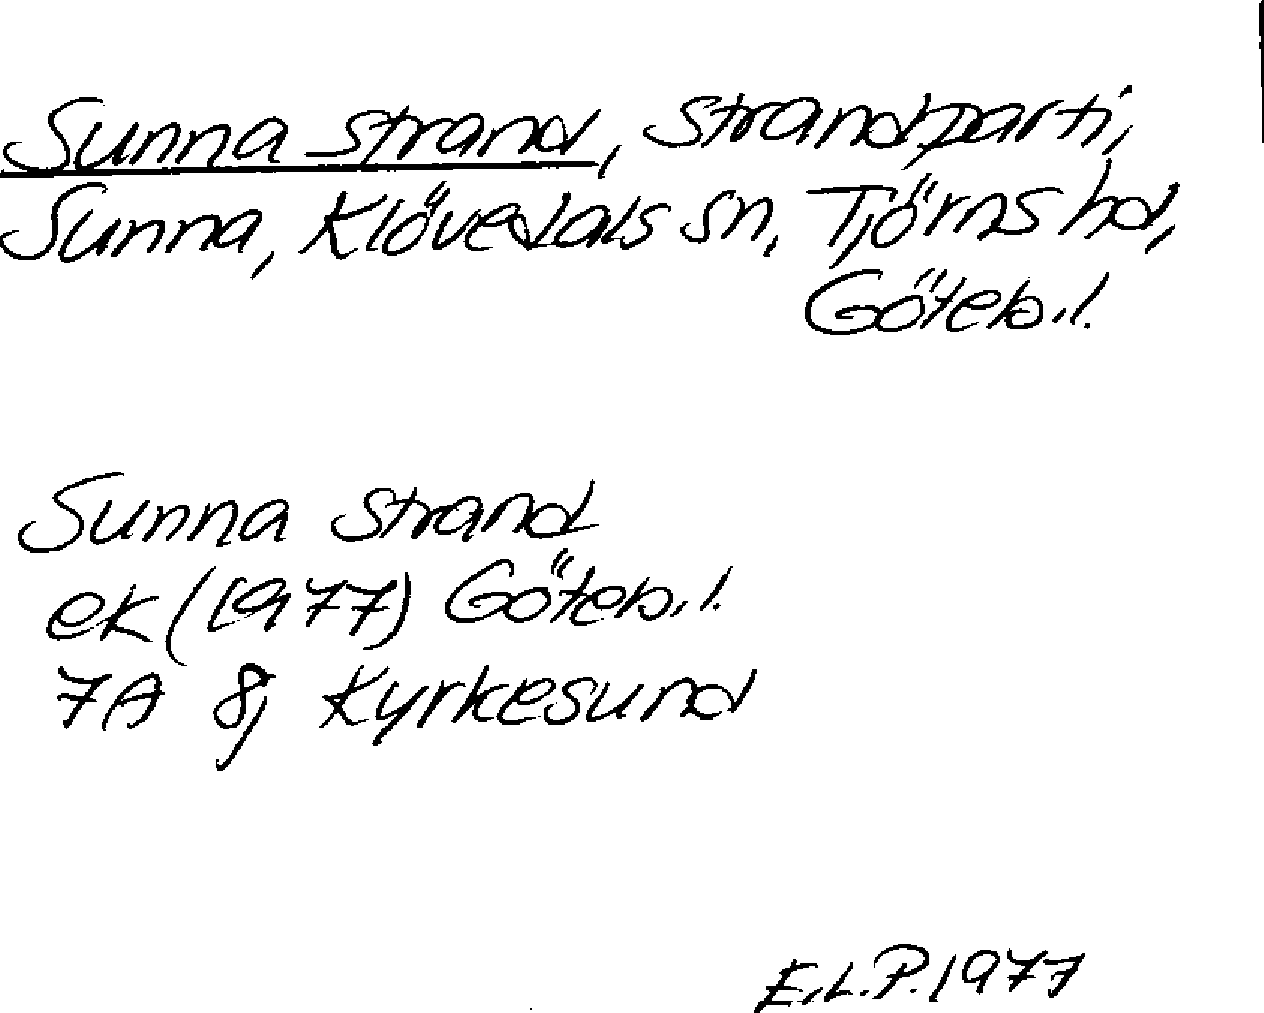 Sunna strand, strandparti,
Sunna, Klövedals sn, Tjörns hd,
Göteb.l.
Sunna strand
ek (1977) Göteb.l.
7A 8j Kyrkesund
E.L.P. 1977